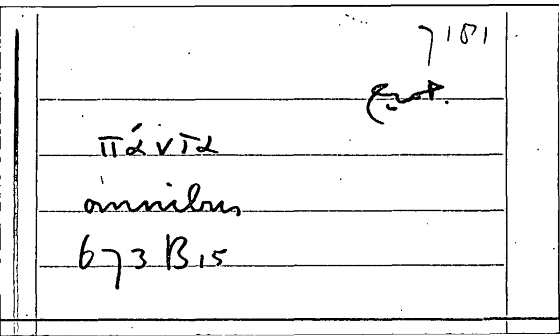 7181
πάντα
omnibus
673 B 15